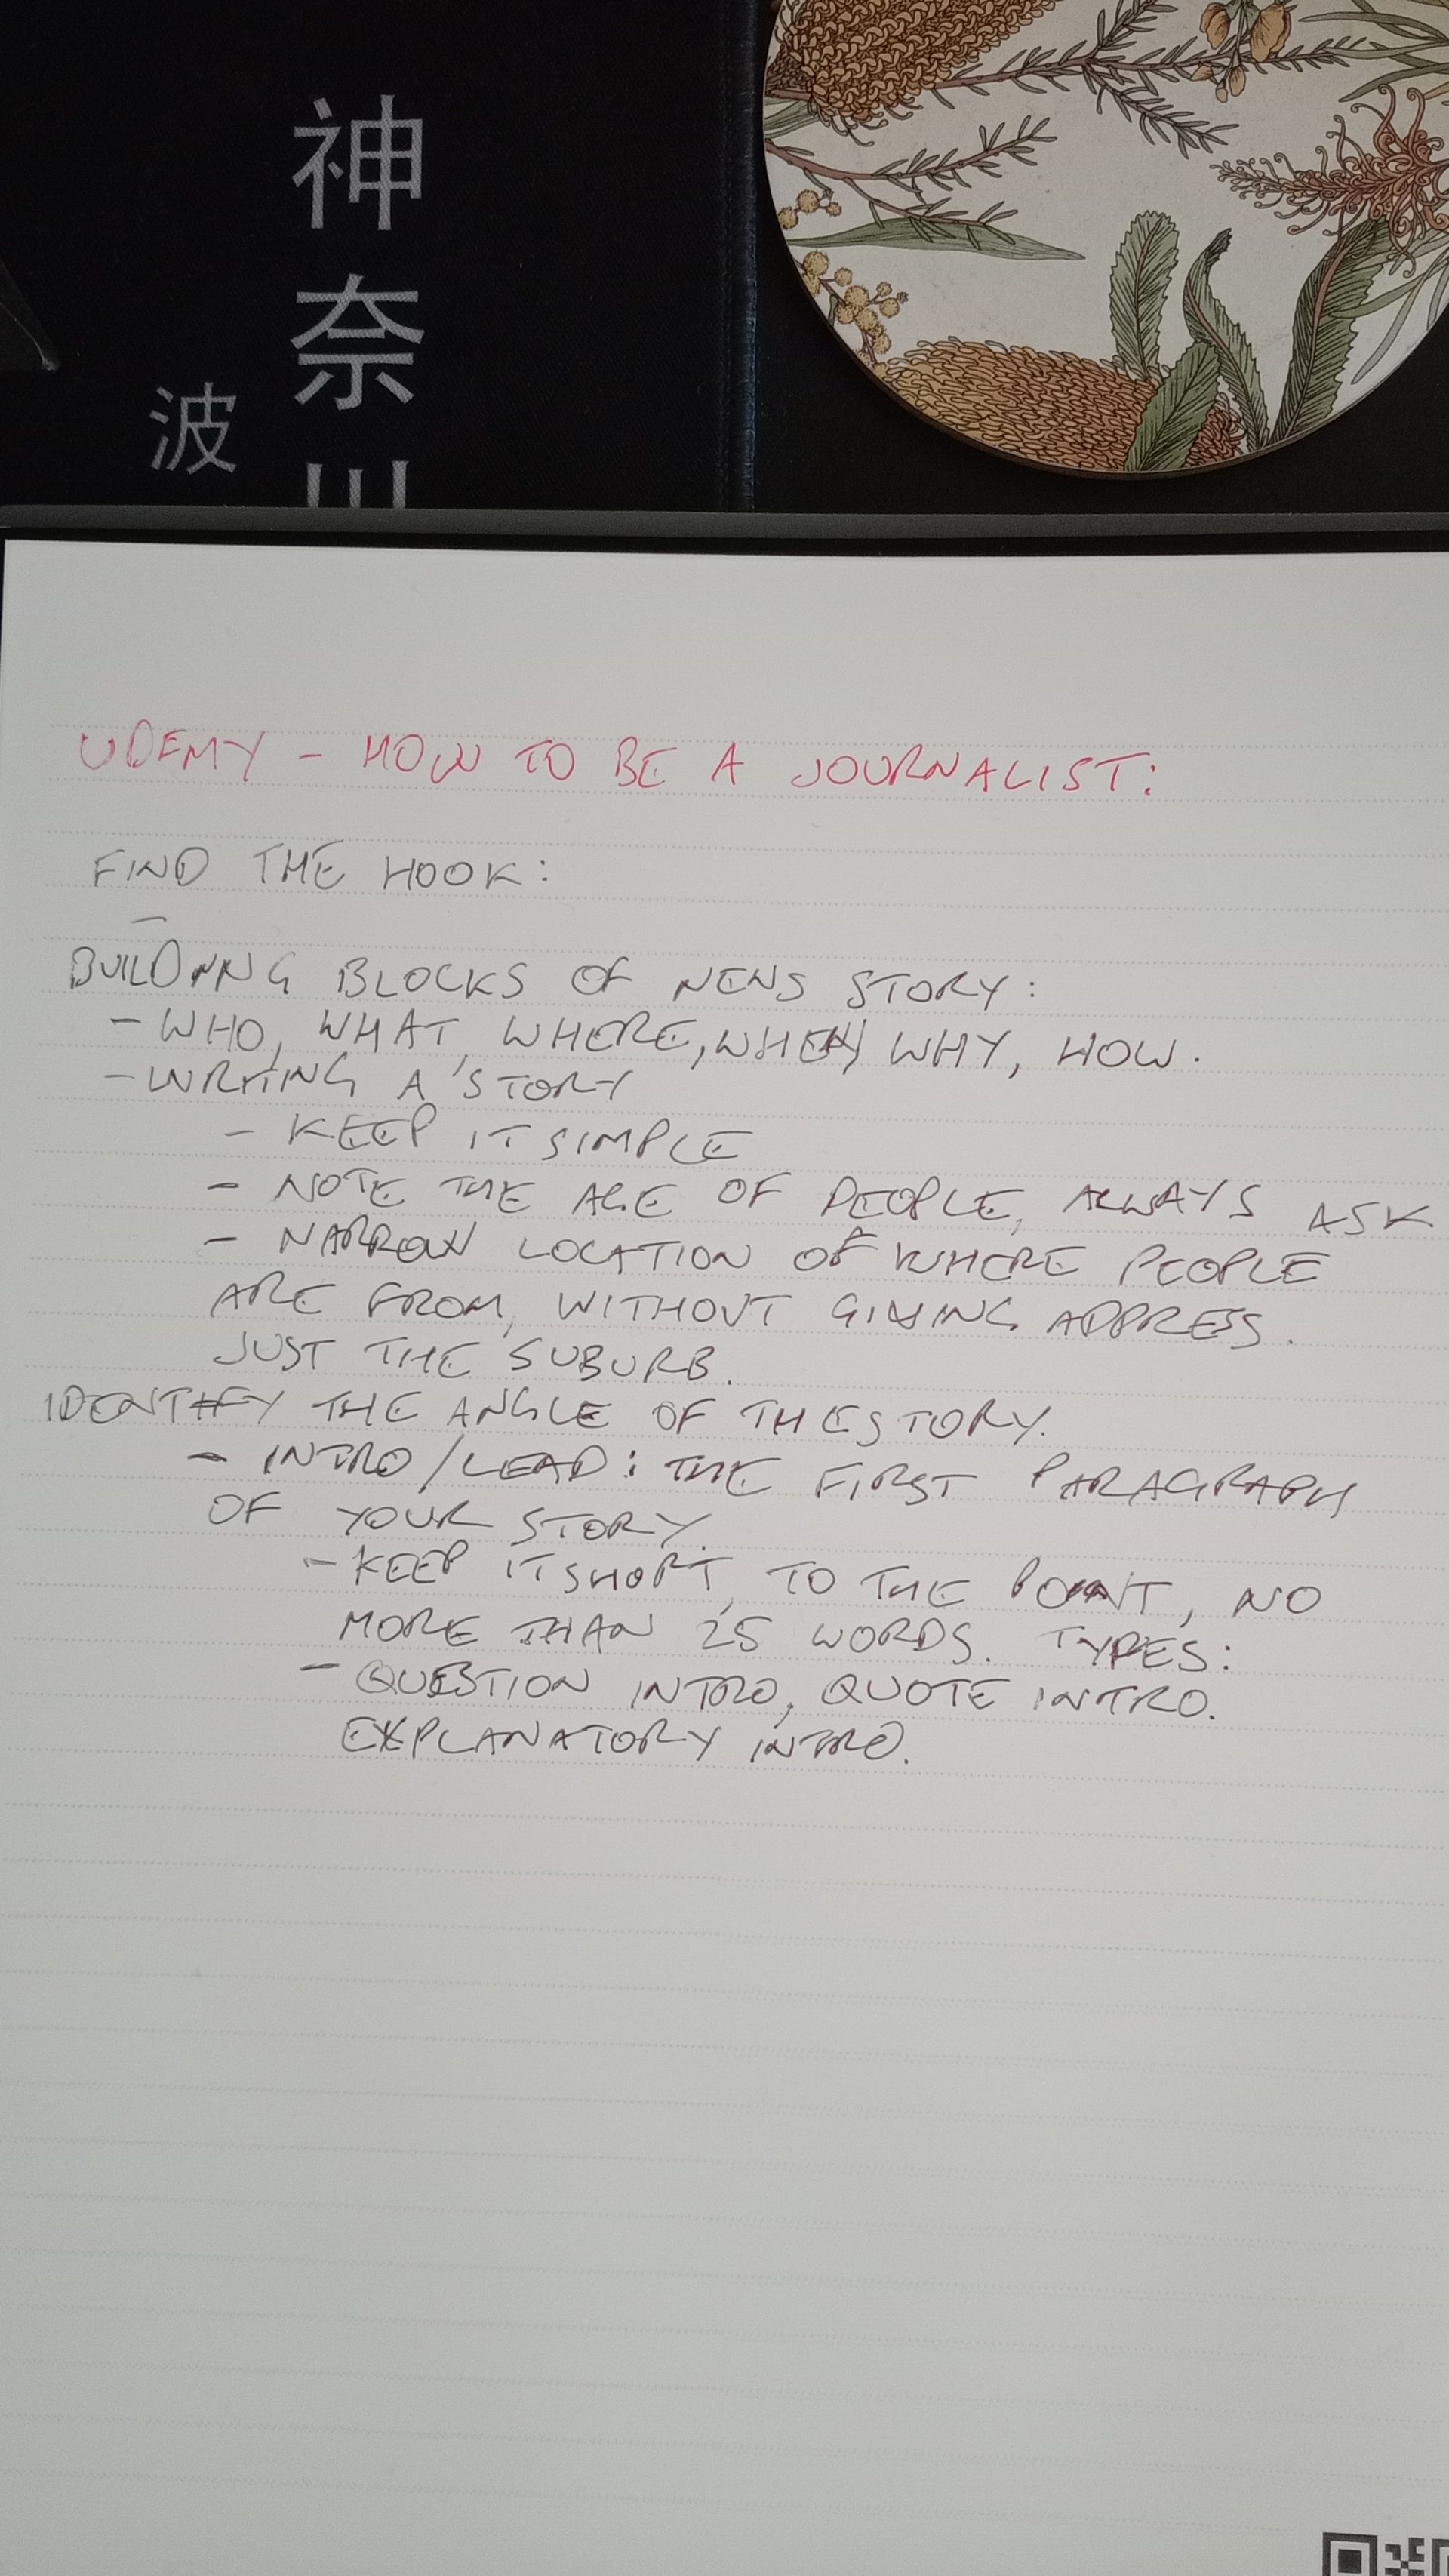 神奈川
波
UDEMY - HOW TO BE A JOURNALIST:
FIND THE HOOK:
-
BUILDING BLOCKS OF NEWS STORY:
- WHO, WHAT, WHERE, WHEN, WHY, HOW.
- WRITING A STORY
- KEEP IT SIMPLE
- NOTE THE AGE OF PEOPLE, ALWAYS ASK
- NARROW LOCATION OF WHERE PEOPLE
ARE FROM, WITHOUT GIVING ADDRESS.
JUST THE SUBURB.
IDENTIFY THE ANGLE OF THE STORY.
- INTRO/LEAD: THE FIRST PARAGRAPH
OF YOUR STORY.
- KEEP IT SHORT, TO THE POINT, NO
MORE THAN 25 WORDS. TYPES:
- QUESTION INTRO, QUOTE INTRO.
EXPLANATORY INTRO.